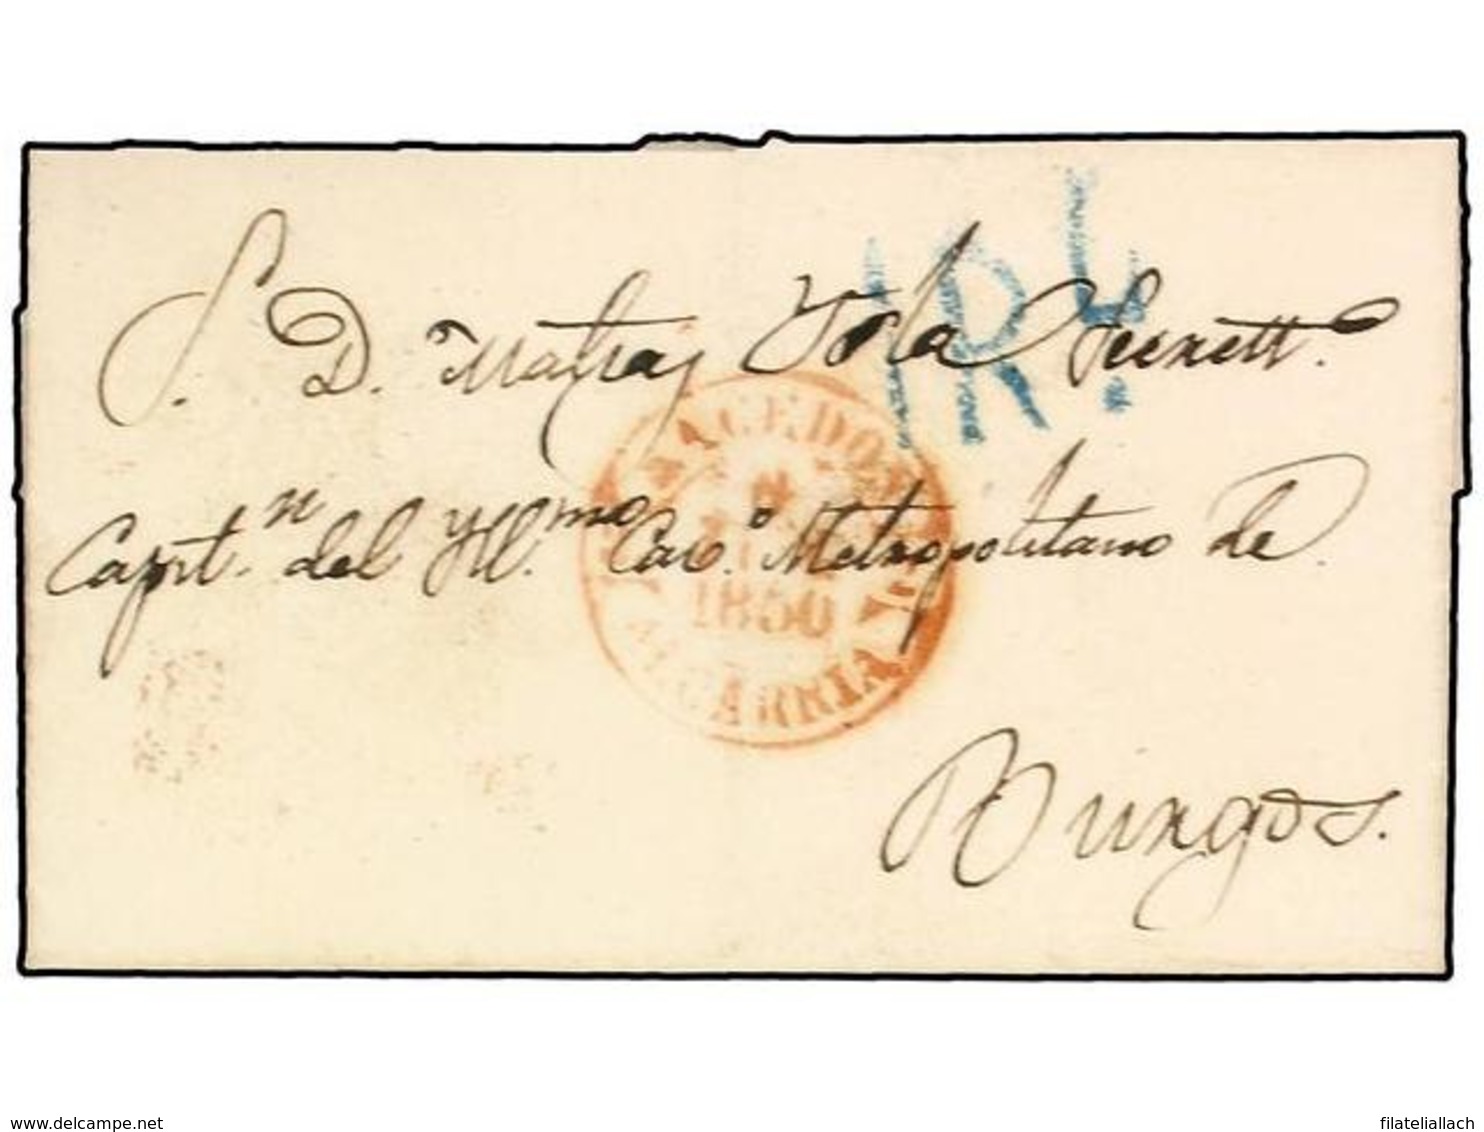 1R
S. D. Matias Yola Secrett.º
Capit.n del Yll.mo Cav.º Metropolitano de
SACEDON
1850
ALCARRIA
Burgos.
delcampe.net
filateliallach